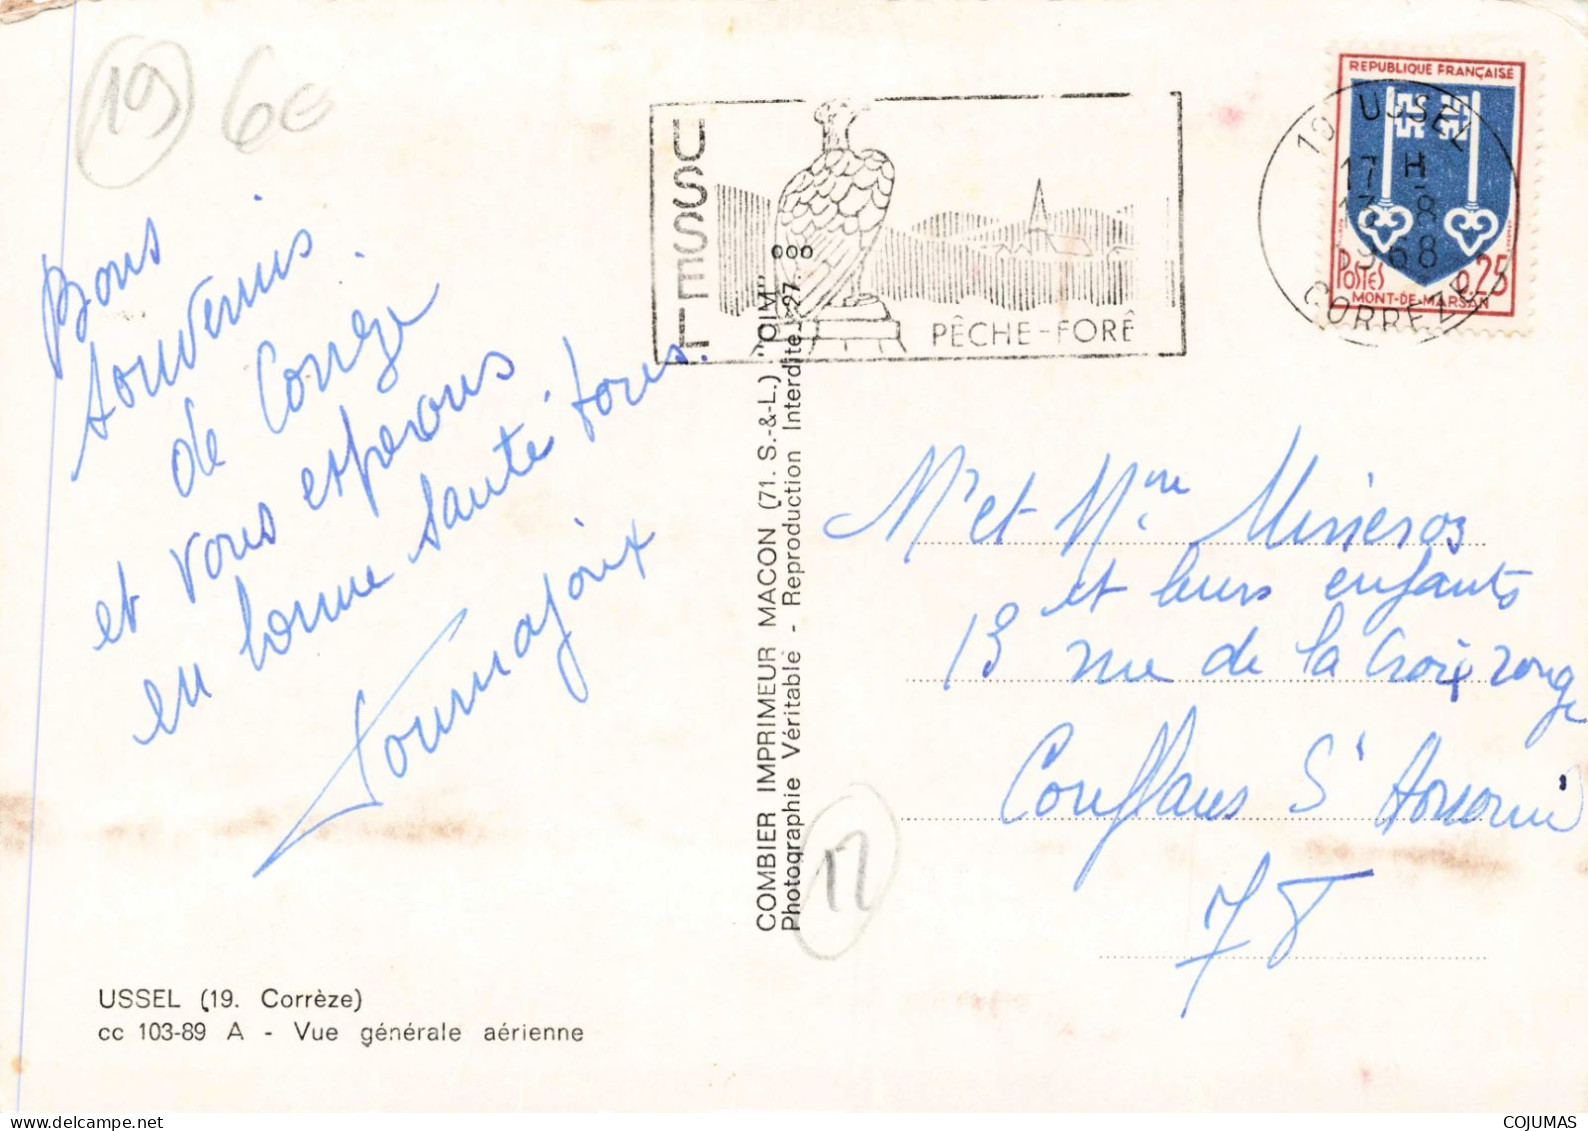 19 6€
Bons
souvenirs
de Corrèze
et vous esperons
en bonne santé tous.
Tournajoix
USSEL (19. Corrèze)
cc 103-89 A - Vue générale aérienne
COMBIER IMPRIMEUR MACON (71. S.-&-L.) "CIM"
Photographie Véritable - Reproduction Interdite 27. 000
17
USSEL
PÊCHE-FORÊ
19 USSEL
17 H
13-8
1968
CORREZE
REPUBLIQUE FRANÇAISE
POSTES
0,25
MONT-DE-MARSAN
Mr et Mme Misieroz
et leurs enfants
13 rue de la Croix rouge
Conflans St Honorine
78
COJUMAS